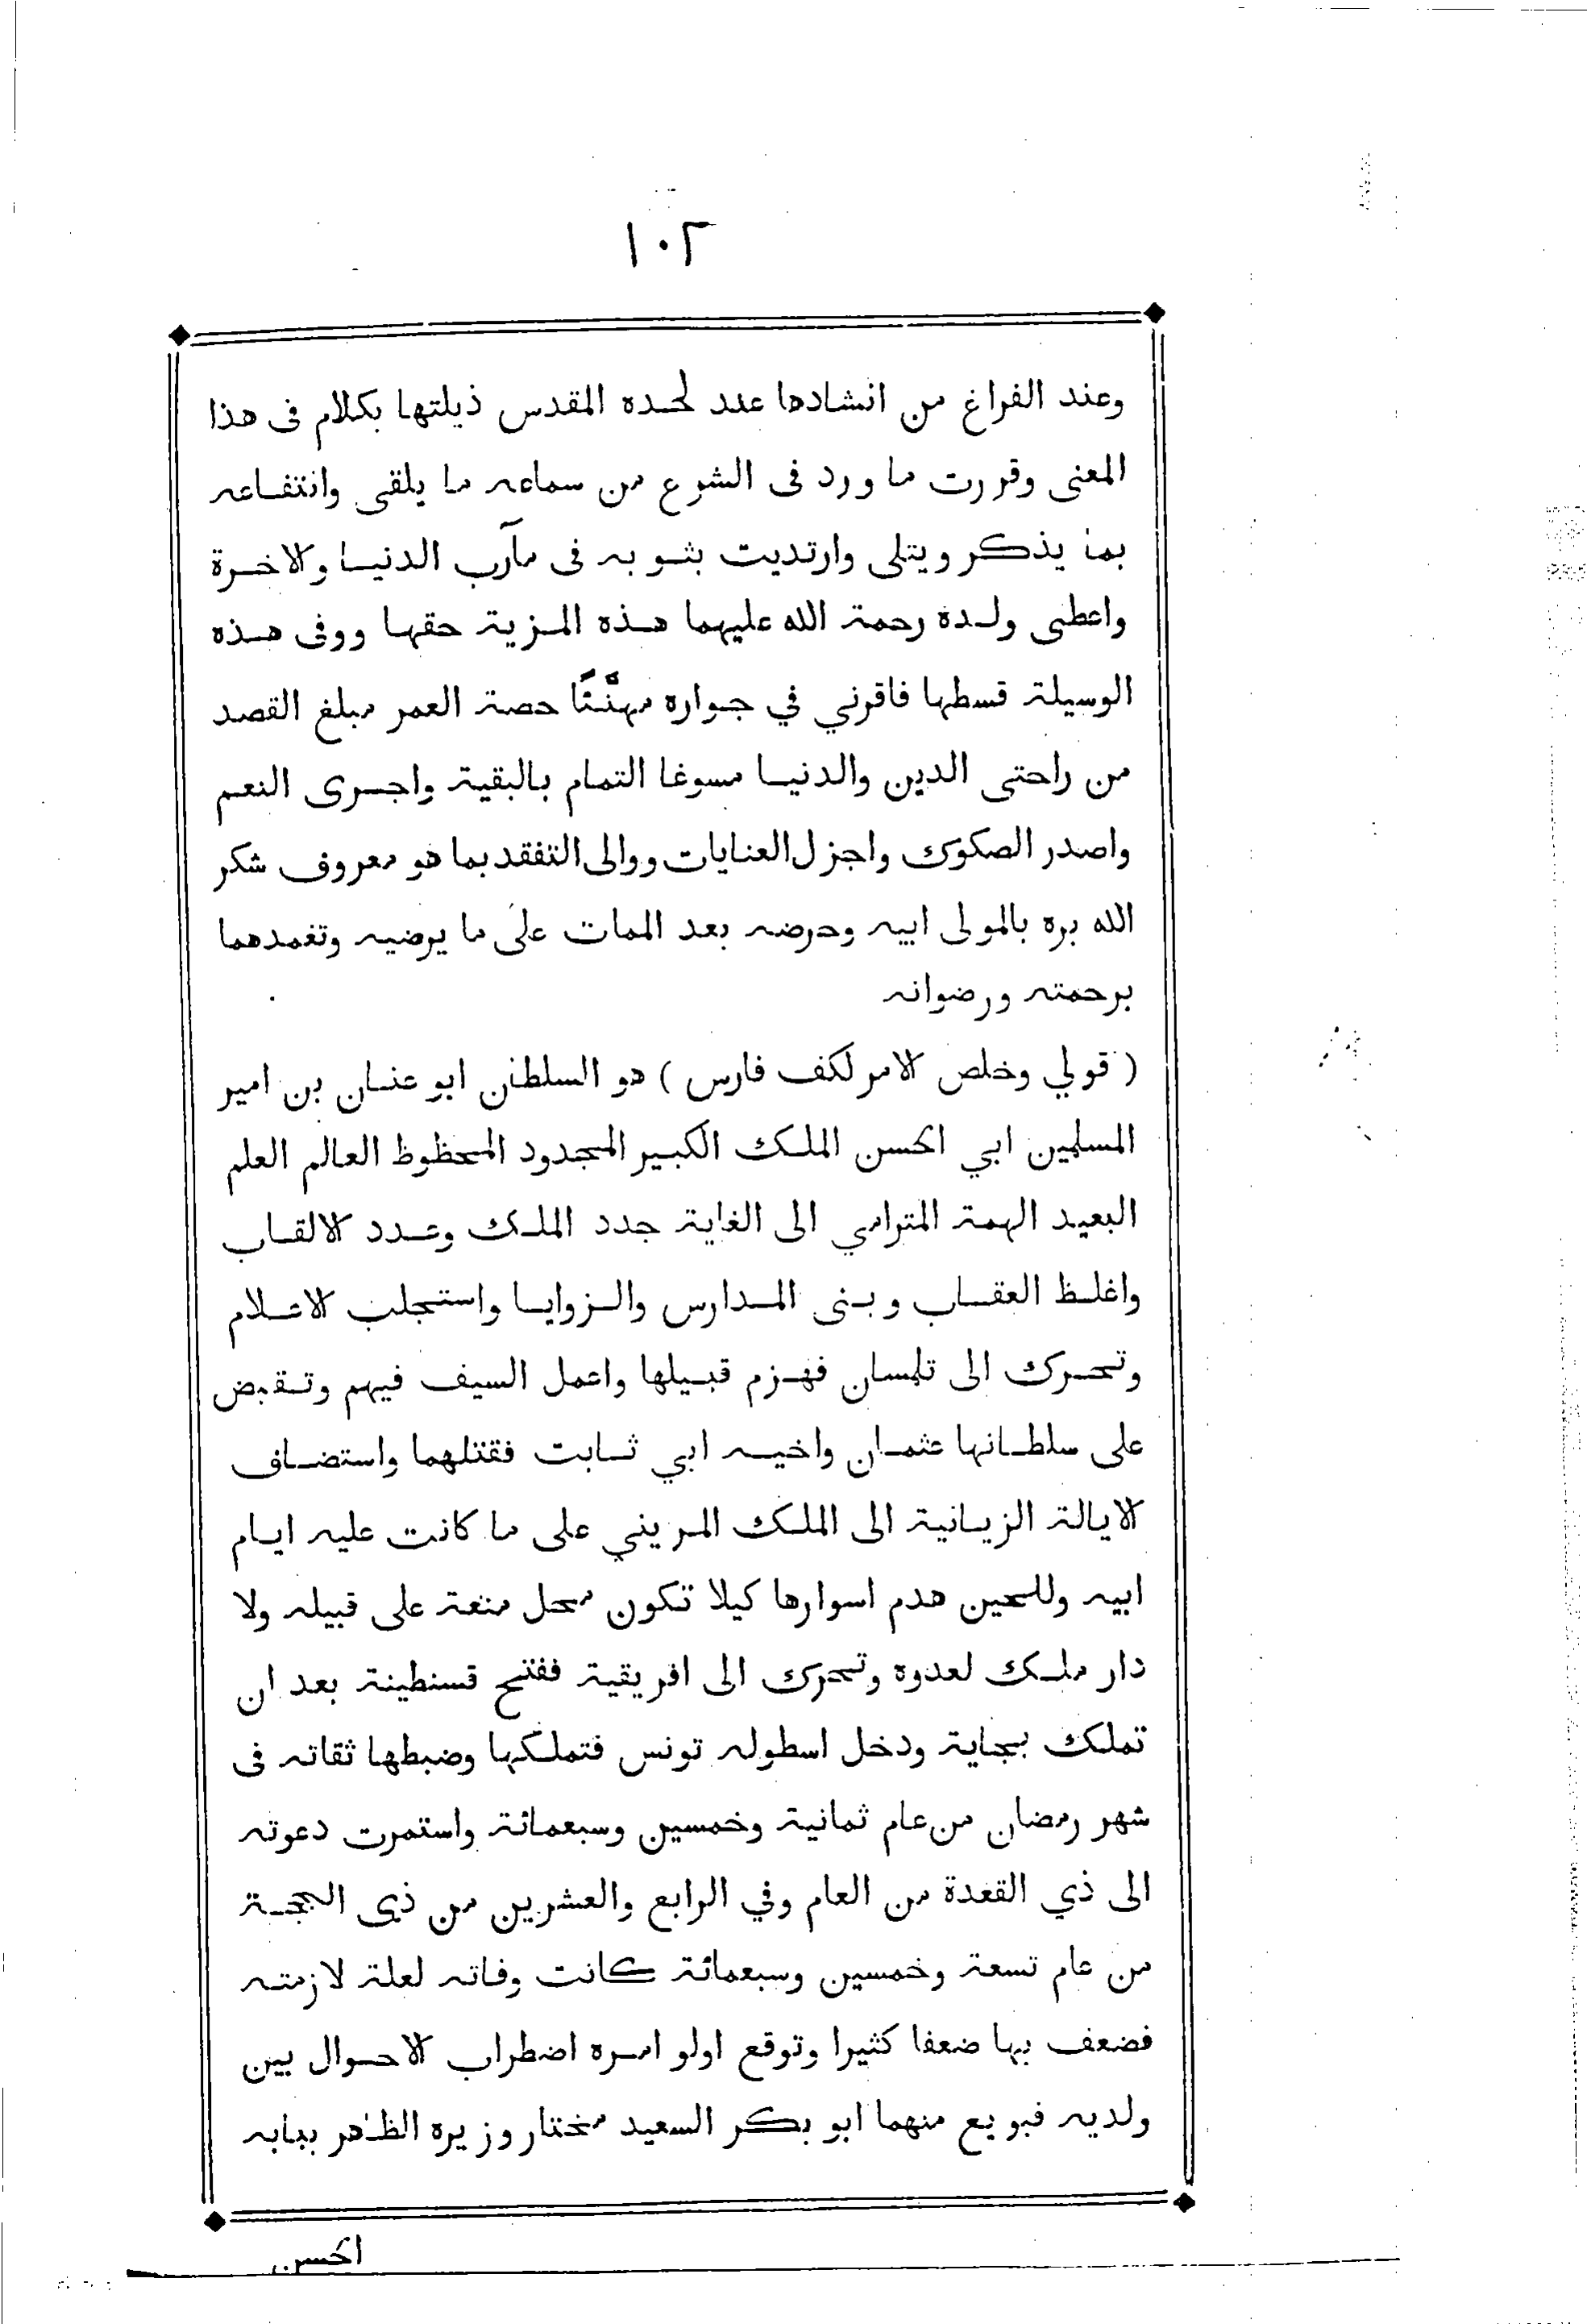 ١٠٢
وعند الفراغ من انشادها عند لحده المقدس ذيلتها بكلام فى هذا
المعنى وقررت ما ورد فى الشرع من سماعه ما يلقى وانتفاعه
بما يذكر ويتلى وارتديت بثوبه فى مآرب الدنيا والاخرة
واعطى ولده رحمة الله عليهما هذه المزية حقها ووفى هذه
الوسيلة قسطها فاقرني في جواره مهنَّئًا حصة العمر مبلغ القصد
من راحتى الدين والدنيا مسوغا التمام بالبقية واجرى النعم
واصدر الصكوك واجزل العنايات ووالى التفقد بما هو معروف شكر
الله بره بالمولى ابيه وحرضه بعد الممات على ما يرضيه وتغمدهما
برحمته ورضوانه
( قولي وخلص الامر لكف فارس ) هو السلطان ابو عنان بن امير
المسلمين ابي الحسن الملك الكبير المجدود المحظوظ العالم العلم
البعيد الهمة المترامي الى الغاية جدد الملك وعدد الالقاب
واغلظ العقاب وبنى المدارس والزوايا واستجلب الاعلام
وتحرك الى تلمسان فهزم قبيلها واعمل السيف فيهم وتقبض
على سلطانها عثمان واخيه ابي ثابت فقتلهما واستضاف
الايالة الزيانية الى الملك المريني على ما كانت عليه ايام
ابيه وللحين هدم اسوارها كيلا تكون محل منعة على قبيله ولا
دار ملك لعدوه وتحرك الى افريقية ففتح قسنطينة بعد ان
تملك بجاية ودخل اسطوله تونس فتملكها وضبطها ثقاته فى
شهر رمضان من عام ثمانية وخمسين وسبعمائة واستمرت دعوته
الى ذي القعدة من العام وفي الرابع والعشرين من ذى الحجة
من عام تسعة وخمسين وسبعمائة كانت وفاته لعلة لازمته
فضعف بها ضعفا كثيرا وتوقع اولو امره اضطراب الاحوال بين
ولديه فبويع منهما ابو بكر السعيد مختار وزيره الظاهر ببابه
الحسن